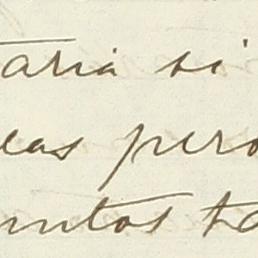 taria si
eas pero
untos ta